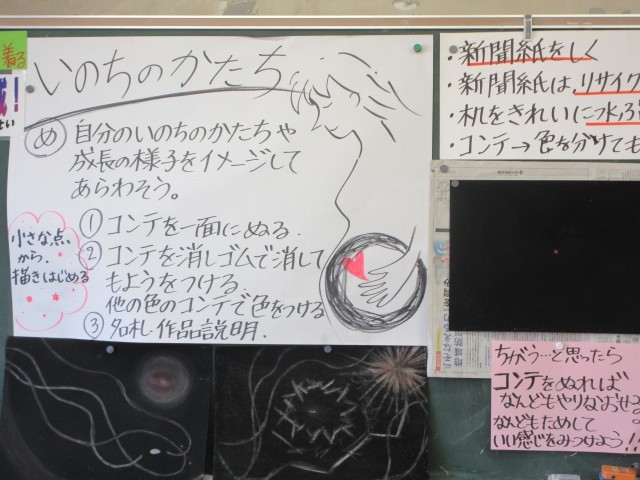 着る
！
せい
いのちのかたち
め 自分のいのちのかたちや
成長の様子をイメージして
あらわそう。
① コンテを一面にぬる.
② コンテを消しゴムで消して
もようをつける.
他の色のコンテで色をつける
③ 名札・作品説明.
小さな点、
から、
描きはじめる
・新聞紙をしく
・新聞紙は、リサイク
・机をきれいに水ぶ
・コンテ→色を分けても
ちがう…と思ったら
コンテをぬれば
なんどもやりなおせる
なんどもためして
いい感じをみつけよう!!